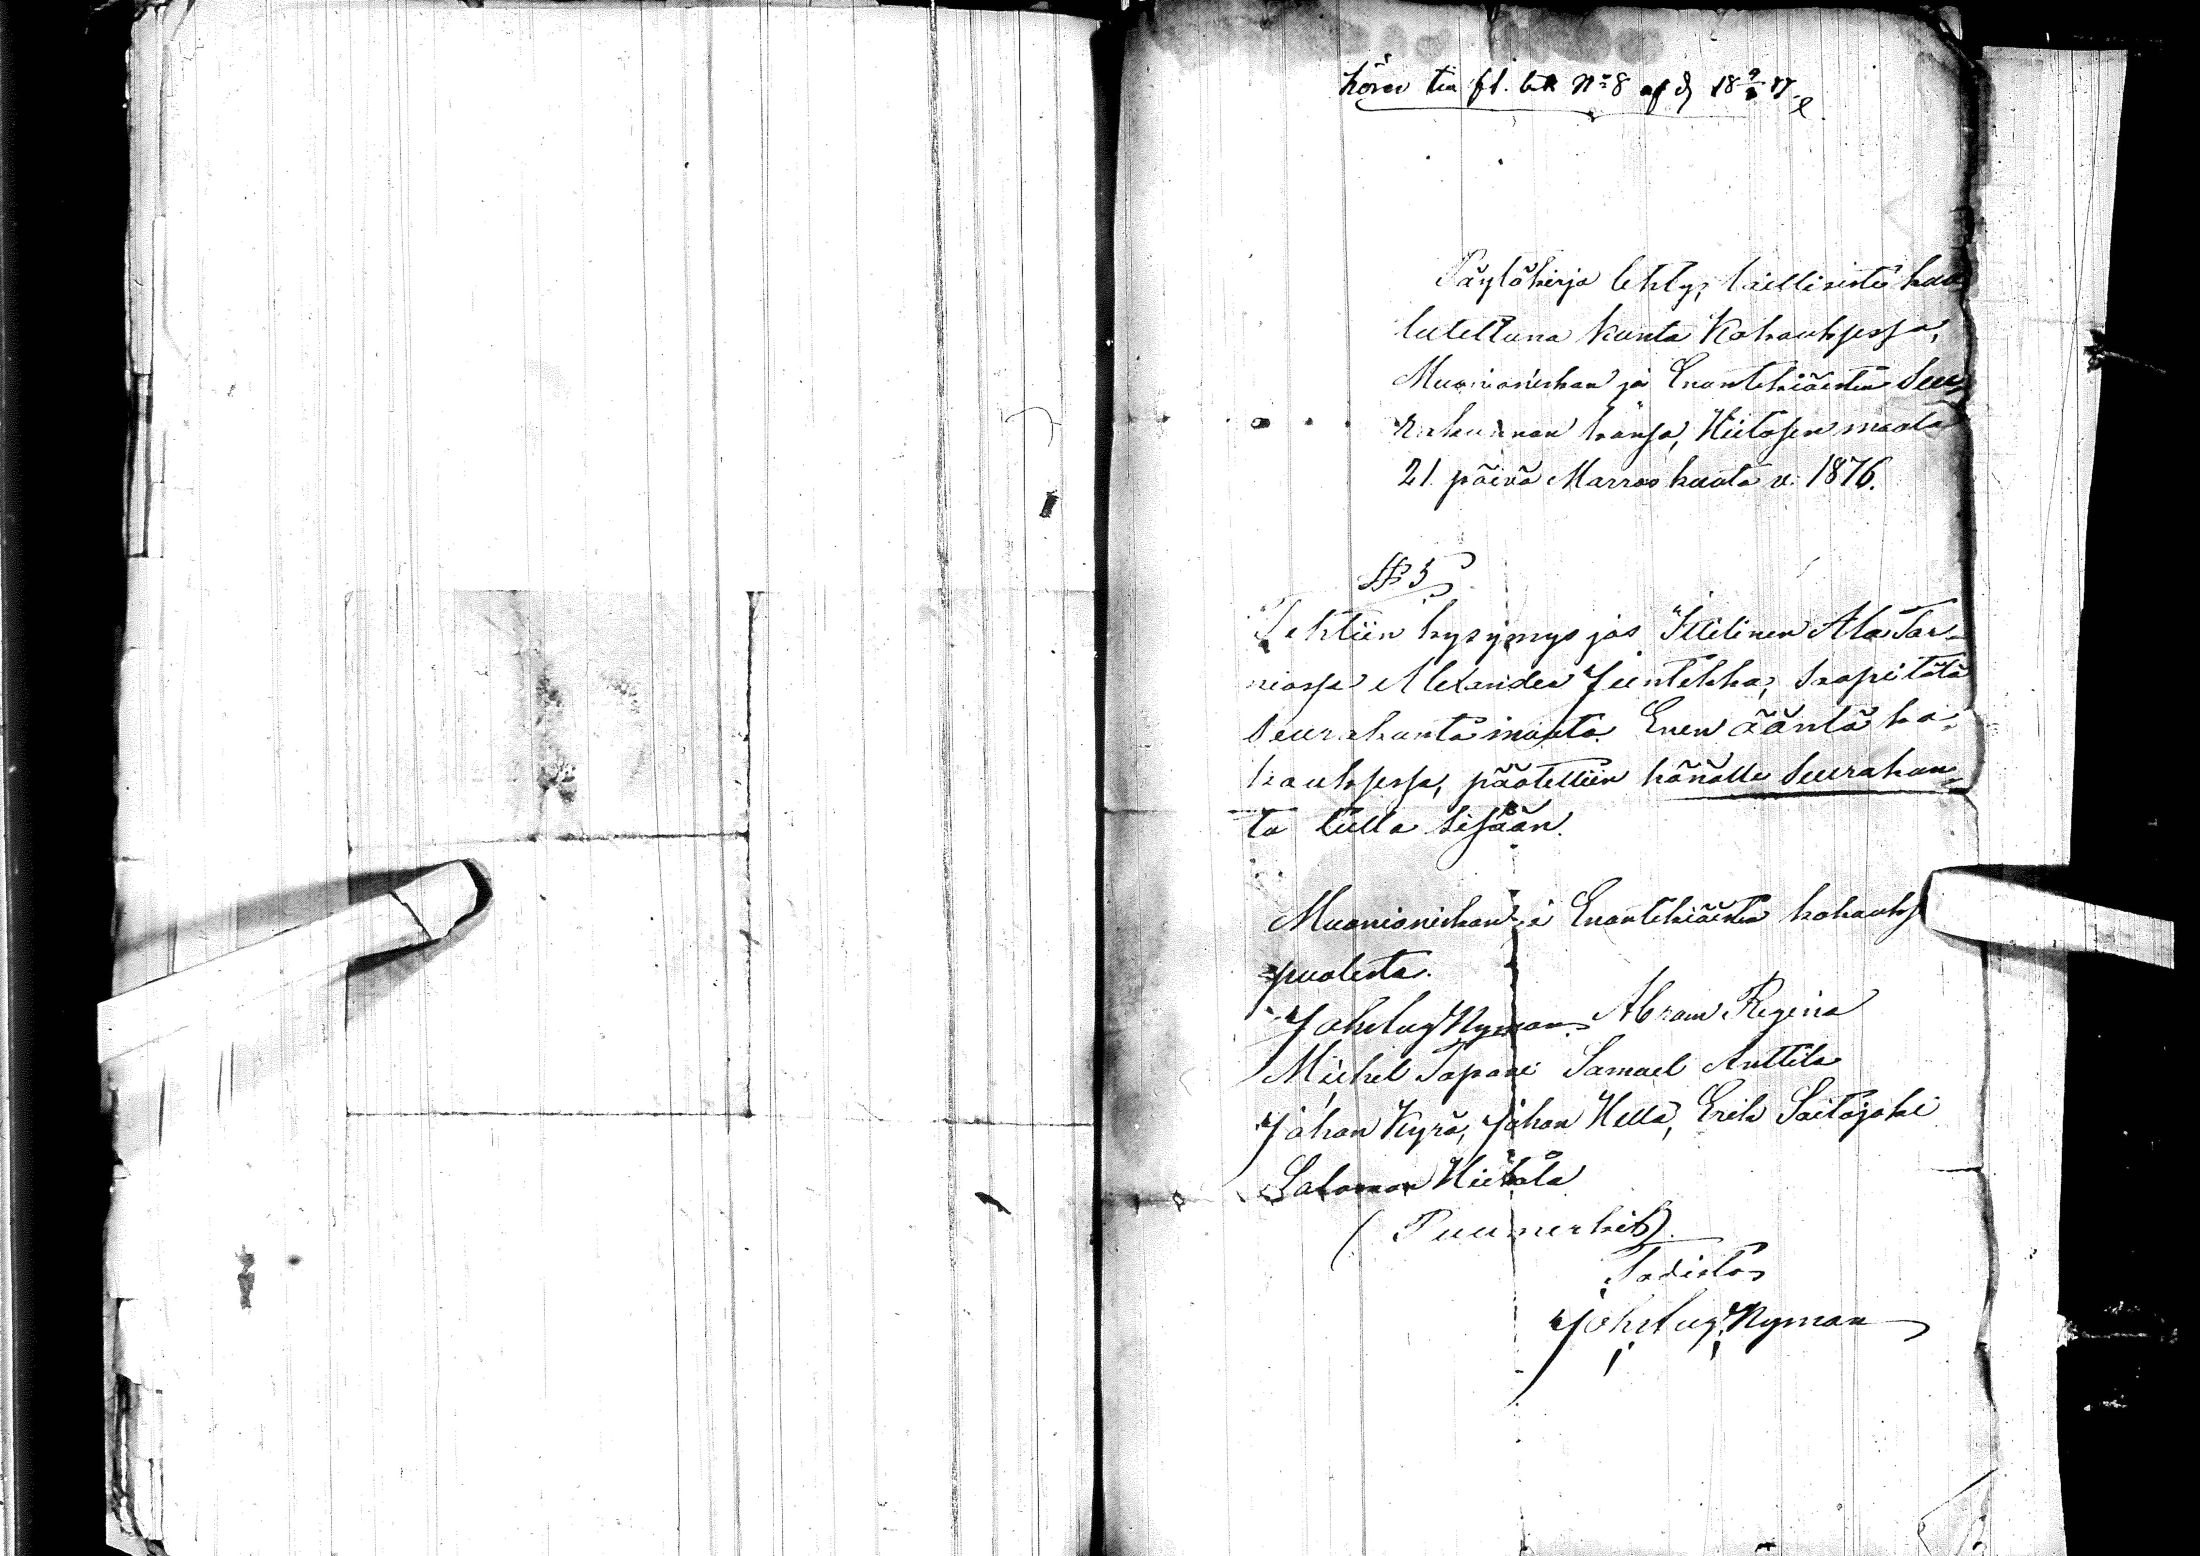 hörer till fl. bet No 8 af d 18 77
Päytökirja tehty, laillisesti kuu
lutettuna kunta Kokouksessa,
Muonioniskan ja Enontekiäisten Seu
rakunnan kansa, Hietasen maala
21 päivä Marras kuuta v. 1876.
§ 5
Tehtiin kysymys jos Itillinen Ala Tor-
niossa Alexander Juntikka, saapi tätä
Seurakunta muuta Enen ääntä ko-
kouksessa, päätettiin hänälle Seurakun
ta tulla sisään.
Muonioniskan ja Enontekiäisten kokouks
puolesta.
Joh Aug Nyman Abram Regina
Michel Tapani Samuel Anttila
Johan Kyrö, Johan Hella, Erik Saitajoki
Salomon Hietala
(Puumerkit)
Todistas
Joh Aug Nyman